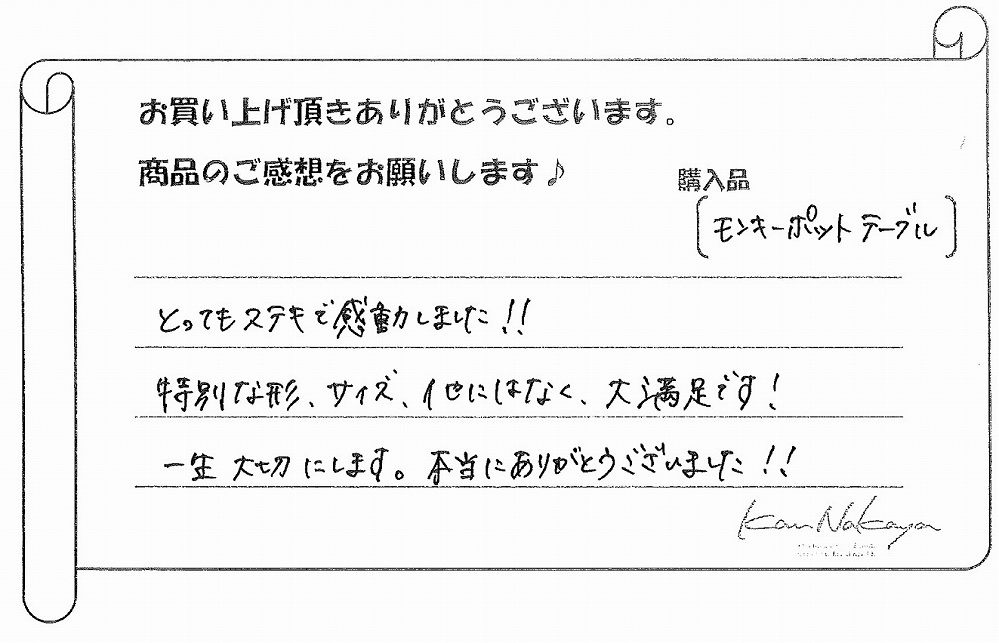 お買い上げ頂きありがとうございます。
商品のご感想をお願いします♪
購入品
[モンキーポットテーブル]
とってもステキで感動しました!!
特別な形、サイズ、他にはなく、大満足です!
一生大切にします。本当にありがとうございました!!
Kan Nakaya